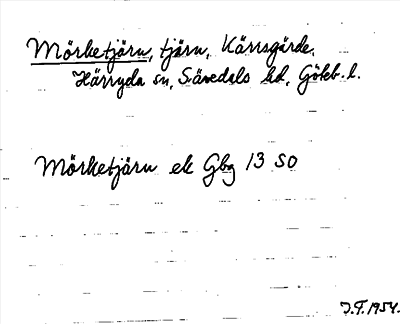 Mörketjärn, tjärn, Kärrsgärde,
Härryda sn, Sävedals hd, Göteb. l.
Mörketjärn ek Gbg 13 SO
J.F. 1954.